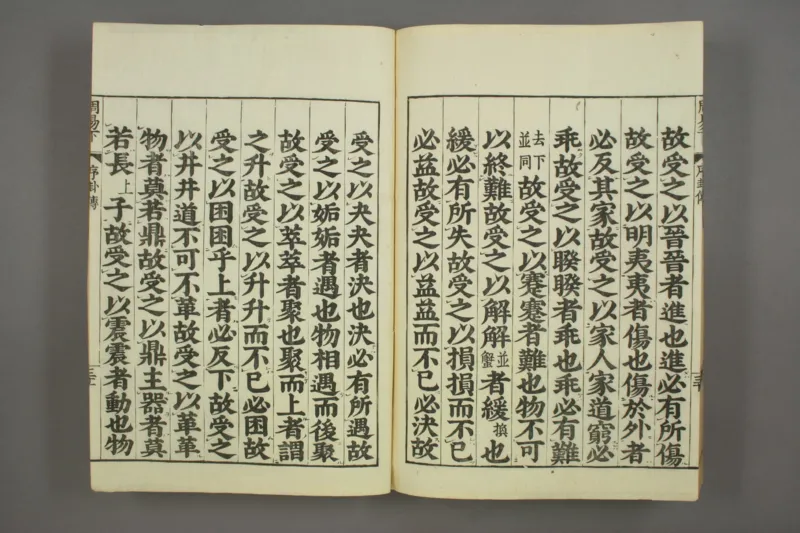 故受之以晉晉者進也進必有所傷
故受之以明夷夷者傷也傷於外者
必反其家故受之以家人家道窮必
乖故受之以睽睽者乖也乖必有難
去下並同故受之以蹇蹇者難也物不可
以終難故受之以解解並蟹者緩換也
緩必有所失故受之以損損而不已
必益故受之以益益而不已必決故
受之以夬夬者決也決必有所遇故
受之以姤姤者遇也物相遇而後聚
故受之以萃萃者聚也聚而上者謂
之升故受之以升升而不已必困故
受之以困困乎上者必反下故受之
以井井道不可不革故受之以革革
物者莫若鼎故受之以鼎主器者莫
若長上子故受之以震震者動也物
周易下 序卦傳